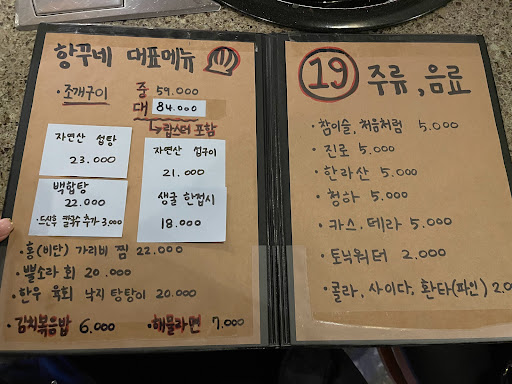 항꾸네 대표메뉴
· 조개구이 중 59.000
대 84.000
↳랍스터 포함
자연산 섭탕
23.000
자연산 섭구이
21.000
백합탕
22.000
· 드신후 칼국수 추가 3.000
생굴 한접시
18.000
· 홍(비단) 가리비 찜 22.000
· 뿔소라 회 20.000
· 한우 육회 낙지 탕탕이 20.000
· 김치볶음밥 6.000
· 해물라면 7.000
19 주류, 음료
· 참이슬, 처음처럼 5.000
· 진로 5.000
· 한라산 5.000
· 청하 5.000
· 카스. 테라 5.000
· 토닉워터 2.000
· 콜라, 사이다, 환타(파인) 2.0